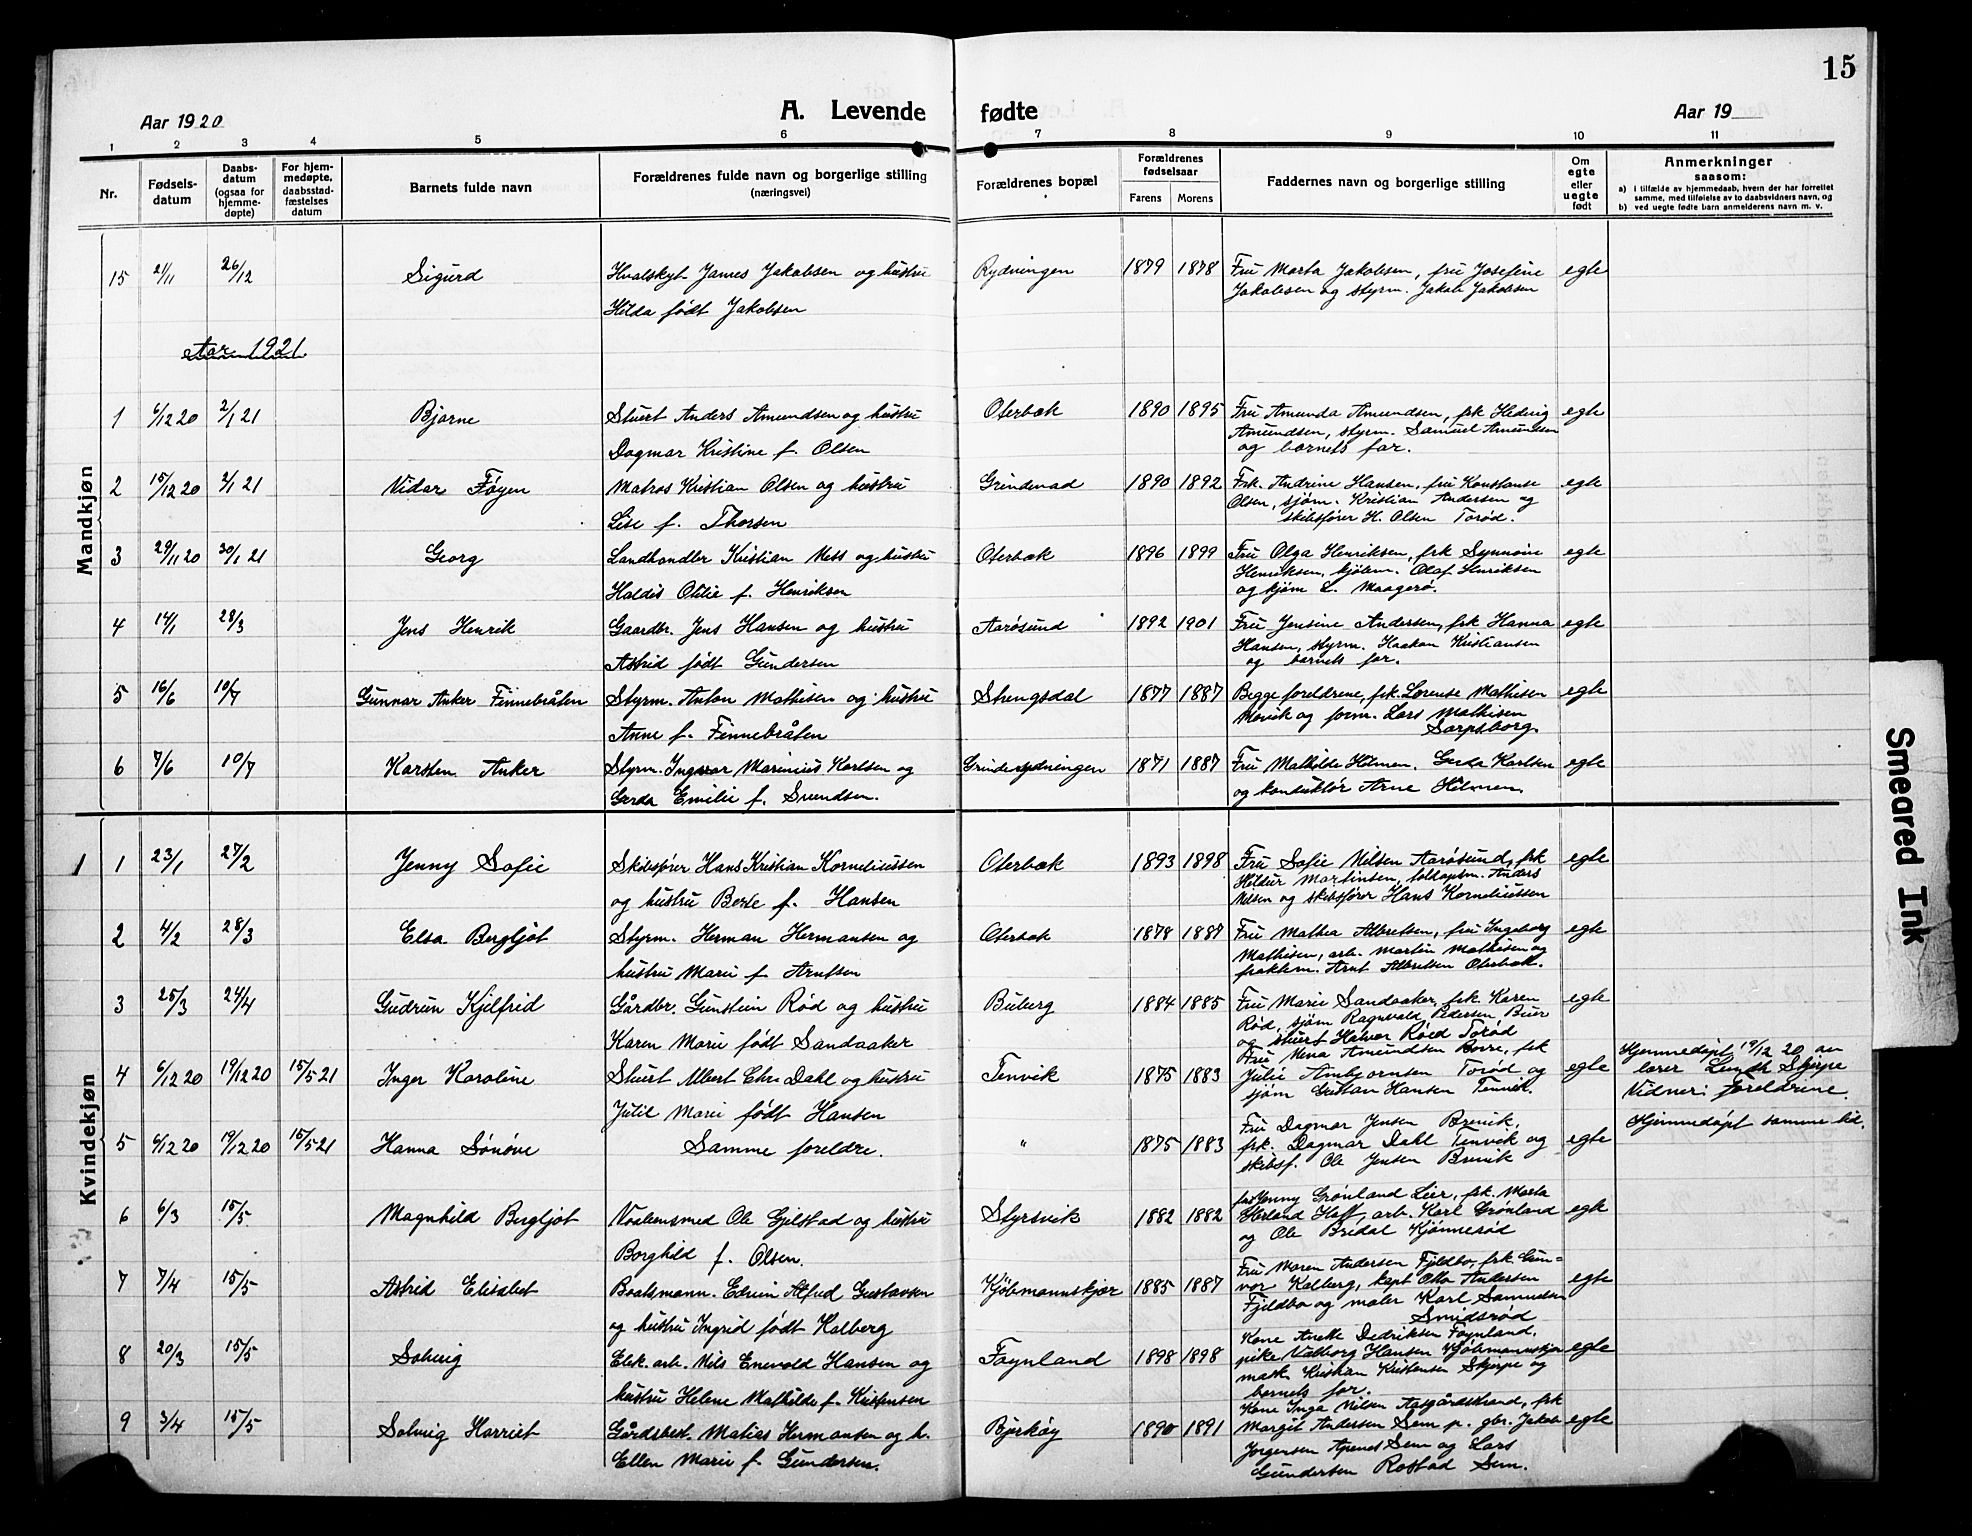 15
Aar 1920
A. Levende fødte
Aar 19
1 2 3 4 5 6 7 8 9 10 11
Nr.
Fødsels-
datum
Daabs-
datum
(ogsaa for
hjemme-
døpte)
For hjem-
medøpte,
daabsstad-
fæstelses
datum
Barnets fulde navn
Forældrenes fulde navn og borgerlige stilling
(næringsvei)
Forældrenes bopæl
Forældrenes
fødselsaar
Farens Morens
Faddernes navn og borgerlige stilling
Om
egte
eller
uegte
født
Anmerkninger
saasom:
a) i tilfælde av hjemmedaab, hvem der har forrettet
samme, med tilføielse av to daabsvidners navn, og
b) ved uegte fødte barn anmelderens navn m. v.
Mandkjøn
15 21/11 26/12 Sigurd Hvalskyt. James Jakobsen og hustru Rydningen 1879 1878 Fru Marta Jakobsen, fru Josefine egte
Hilda født Jakobsen
Jakobsen og styrm. Jakob Jakobsen
Aar 1921.
1 6/12 20 2/1 21 Bjarne Stuert Anders Amundsen og hustru Oterbæk 1890 1895 Fru Amunda Amundsen, frk Hedvig egte
Dagmar Kristine f. Olsen
Amundsen, styrm. Samuel Amundsen
og barnets far.
2 15/12 20 2/1 21 Vidar Føyen Matros Kristian Olsen og hustru Grindevad 1890 1892 Frk. Andrine Hansen, fru Konstanse egte
Lise f. Thorsen
Olsen, sjøm. Kristian Andersen og
skibsfører H. Olsen Torød.
3 29/11 20 30/1 21 Georg Landhandler Kristian Ness og hustru Oterbæk 1896 1899 Fru Olga Henriksen, frk Synnøve egte
Haldis Otilie f. Henriksen
Henriksen, kjøbm. Olaf Henriksen
og kjøm L. Maagerø.
4 14/1 28/3 Jens Henrik Gaardbr. Jens Hansen og hustru Aarøsund 1892 1901 Fru Jensine Andersen, frk Hanna egte
Astrid født Gundersen
Hansen, styrm. Haakon Kristiansen
og barnets far.
5 16/6 10/7 Gunnar Anker Finnebråten Styrm. Anton Mathisen og hustru Strengsdal 1877 1887 Begge foreldrene, frk. Lorense Mathisen egte
Anne f. Finnebråten
og form. Lars Mathisen
Sarpsborg.
6 7/6 10/7 Karsten Anker Styrm. Ingvar Marinius Karlsen og Grinderydningen 1871 1887 Fru Mathilde Holmen. Gerda Karlsen egte
Gerda Emilie f. Svendsen.
og konduktør Arne Holmen.
Kvindekjøn
1 1 23/1 27/2 Jenny Sofie Skibsfører Hans Kristian Korneliussen Oterbæk 1893 1898 Fru Sofie Nilsen Aarøsund, frk egte
og hustru Berte f. Hansen
Hildur Martinsen, Anders
Nilsen og skibsfører Hans Korneliussen
2 4/2 28/3 Elsa Bergljot Styrm. Herman Hermansen og Oterbæk 1878 1887 Fru Mathea Albretsen, fru Ingeborg egte
hustru Marie f. Arntsen
Mathisen, arb. Martin Mathisen og
fraktem. Arnt Albretsen Oterbæk.
3 25/3 24/4 Gudrun Kjelfrid Gårdbr. Gunstein Rød og hustru Buberg 1884 1885 Fru Marie Sandaaker, frk. Karen egte
Karen Marie født Sandaaker
Rød, sjøm Ragnvald Pedersen Buer
og stuert Halvor Røed Torød
4 6/12 20 19/12 20 15/5 21 Inger Karoline Stuert Albert Chr. Dahl og hustru Tenvik 1875 1883 Fru Nina Amundsen Borre, frk egte
Julie Marie født Hansen
Julie Ambjørnsen Torød og
sjøm Gustav Hansen Tenvik.
Hjemmedøpt 19/12 20 av
lærer Lunde Skjerpe
Vidner: foreldrene.
5 6/12 20 19/12 20 15/5 21 Hanna Sønøve Samme foreldre. " 1875 1883 Fru Dagmar Jensen Brevik, egte
frk. Dagmar Dahl Tenvik og
skibsf. Ole Jensen Brevik
Hjemmedøpt samme tid.
6 6/3 15/5 Magnhild Bergljot Vaabensmed Ole Gjelstad og hustru Styrsvik 1882 1882 fru Jenny Grønland Lier, frk. Marta egte
Borghild f. Olsen.
Herland Haff, arb. Karl Grønland
og Ole Bredal Kjønnerød
7 7/4 15/5 Astrid Elisabet Baatsmann. Edvin Alfred Gustavsen Kjøbmannskjær 1885 1887 Fru Maren Andersen Fjeldbo, frk Gun= egte
og hustru Ingrid født Kalberg
vor Kalberg, kapt Otto Andersen
Fjeldbo og maler Karl Samuelsen
Smidsrød
8 20/3 15/5 Solveig Elek. arb. Nils Enevold Hansen og Føynland 1898 1898 Kone Anette Dedriksen Føynland, egte
hustru Helene Mathilde f. Kristensen
pike Valborg Hansen Kjøbmannskjær
matr. Kristian Kristensen Skjerpe og
barnets far.
9 3/4 15/5 Solveig Harriet Gårdsbest. Matias Hermansen og h. Bjerkøy 1890 1891 Kone Inga Nilsen Aasgårdstrand, frk egte
Ellen Marie f. Gundersen.
Margit Andersen Sem p. gbr. Jakob
Jørgensen Apenes Sem og Lars
Gundersen Rostad Sem.
Smeared Ink